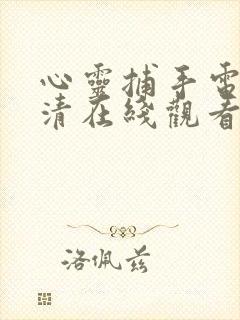 心靈捕手電
清在綫觀看
洛佩兹